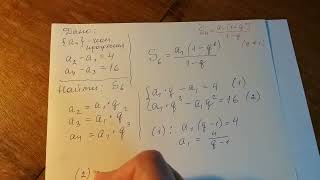 Дано:
{aₙ} - геом.
прогрессия
a₂ - a₁ = 4
a₄ - a₃ = 16
Найти: S₆
a₂ = a₁ · q
a₃ = a₁ · q²
a₄ = a₁ · q³
S₆ = a₁(1-q⁶) / 1-q
{ a₁ · q - a₁ = 4 (1)
a₁ · q³ - a₁q² = 16 (2)
(1): a₁(q-1) = 4
a₁ = 4 / q-1
(2)